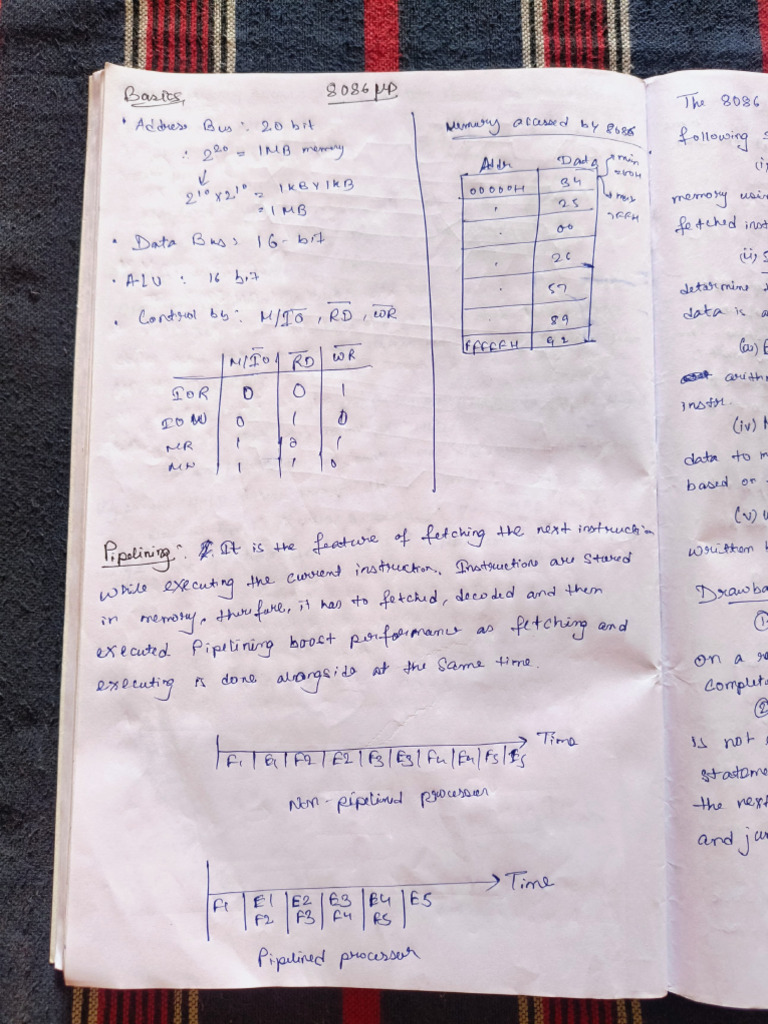 Basics,
8086 μP
• Address Bus : 20 bit
∴ 2^20 = 1MB memory
↓
2^10 x 2^10 = 1KB x 1KB
= 1MB
• Data Bus : 16-bit
• ALU : 16 bit
• Control by : M/I̅O̅ , R̅D̅ , W̅R̅
M/I̅O̅ R̅D̅ W̅R̅
IOR 0 0 1
IOW 0 1 0
MR 1 0 1
MW 1 1 0
Memory accessed by 8086
Addr Data
min
00000H 34
max
. 25
. 00
.
. 57
. 89
FFFFFH 92
Pipelining : It is the feature of fetching the next instruction
while executing the current instruction. Instruction are stored
in memory, therefore, it has to fetched, decoded and then
executed Pipelining boost performance as fetching and
executing is done alongside at the same time.
F1 E1 F2 E2 F3 E3 F4 E4 F5 E5 Time
Non-pipelined processor
Time
F1 E1 E2 E3 E4 E5
F2 F3 F4 F5
Pipelined processor
The 8086
following
memory
fetched
(ii)
determine
data is
instr.
(iv)
data to
based on
(v)
written
on a
is not
the next
and